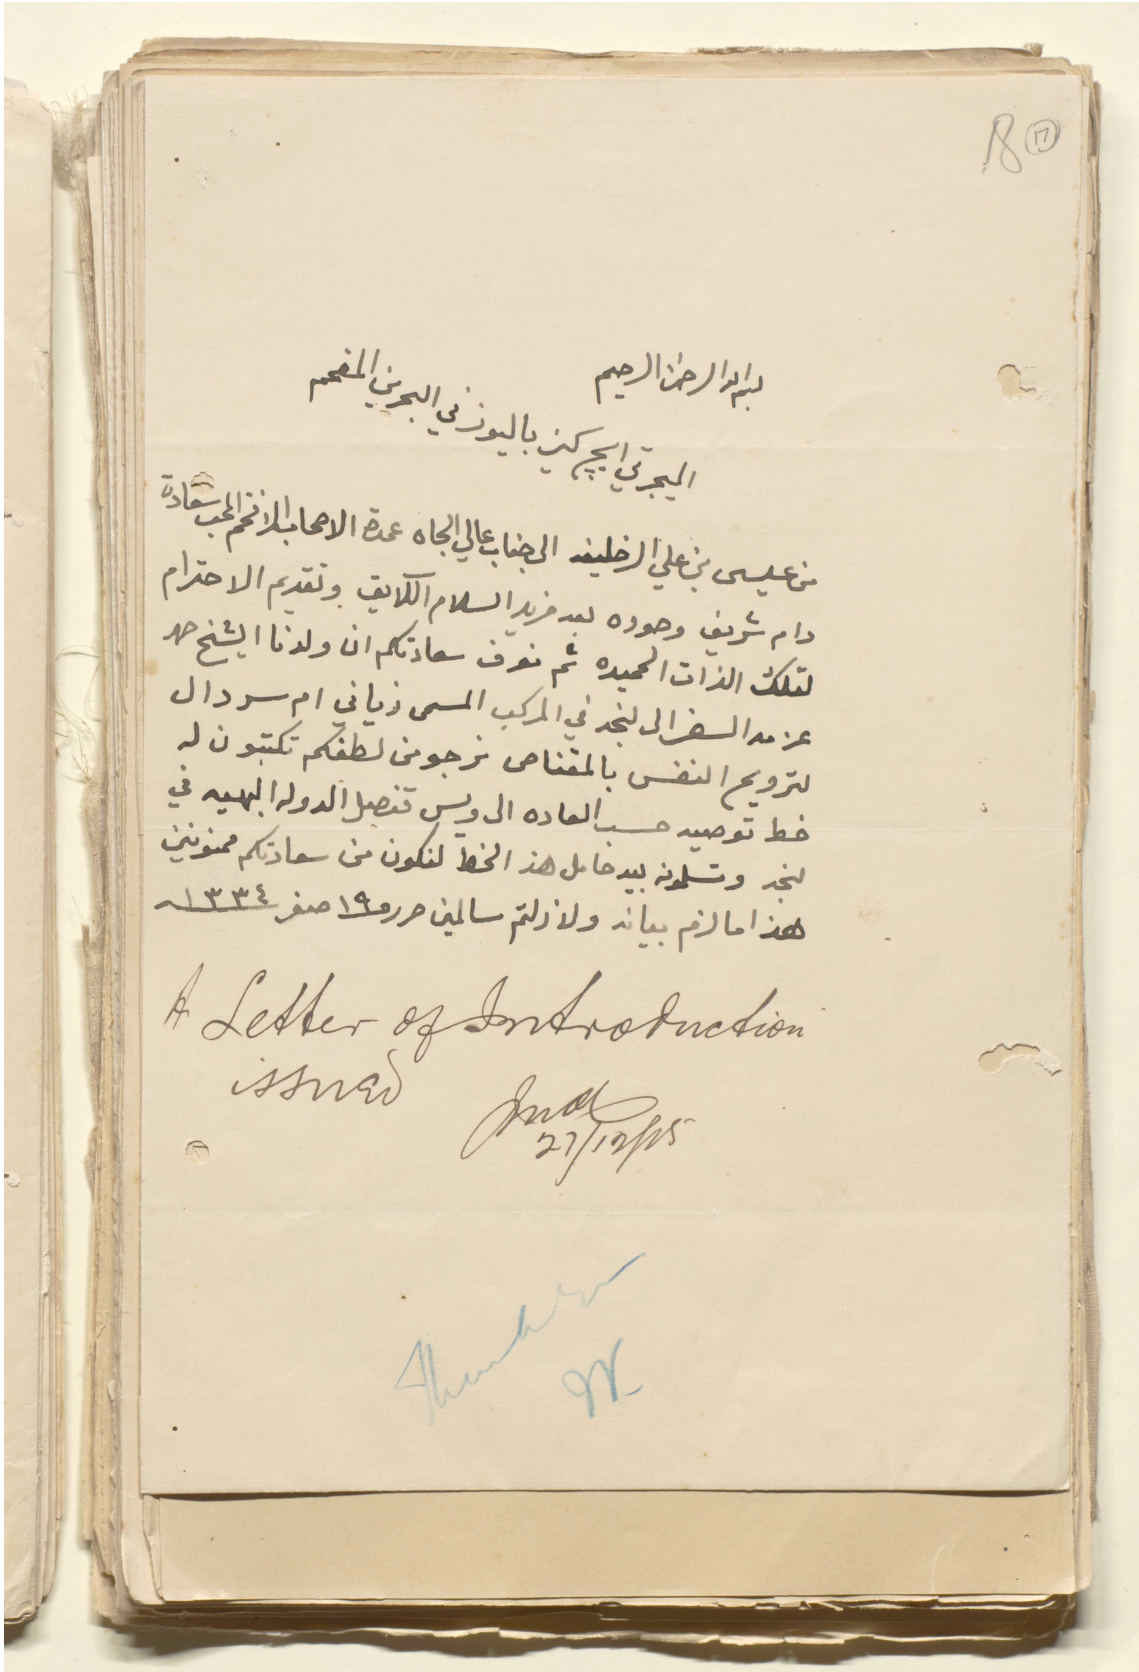 18 17
بسم الله الرحمن الرحيم
الميجر تي ايچ كيز باليوز في البحرين المفخم
من عيسى بن علي ال خليفه الى جناب عالي الجاه عمدة الاصحاب الافخم المحب سعادة
دام شريف وجوده بعد مزيد السلام اللايق وتقديم الاحترام
لتلك الذات الحميده ثم نعرف سعادتكم ان ولدنا الشيخ حمد
عزمه السفر الى لنجه في المركب المسمى زياني ام سردال
لترويح النفس بالمقناص نرجو من لطفكم تكتبون له
خط توصيه حسب العاده الى ويس قنصل الدوله البهيه في
لنجه وتسلمونه بيد حامل هذ الخط لنكون من سعادتكم ممنونين
هذا ما لزم بيانه ولا زلتم سالمين حرر ١٩ صفر ١٣٣٤
A Letter of Introduction
issued
27/12/15